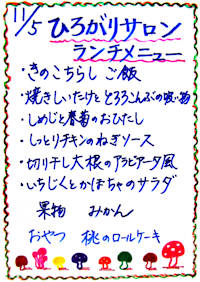 11/5 ひろがりサロン
ランチメニュー
・きのこちらし ご飯
・焼きしいたけと とろろこんぶの吸い物
・しめじと春菊のおひたし
・しっとりチキンのねぎソース
・切り干し大根のアラビアータ風
・いちじくとかぼちゃのサラダ
果物 みかん
おやつ 桃のロールケーキ